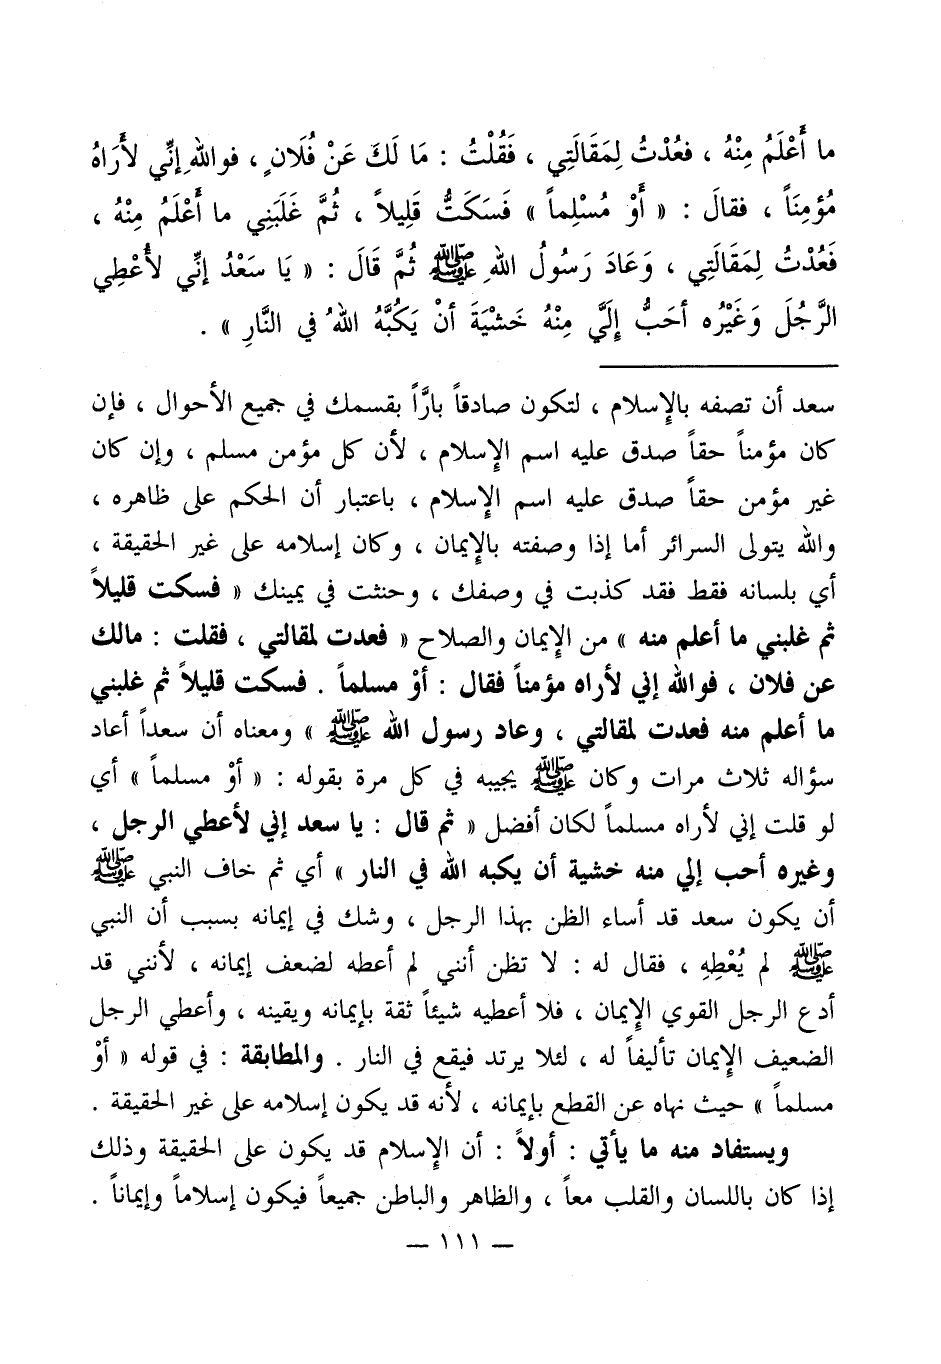 ما أَعْلَمُ مِنْهُ ، فعُدْتُ لِمَقَالَتِي ، فَقُلْتُ : مَا لَكَ عَنْ فُلَانٍ ، فواللهِ إنِّي لأَرَاهُ
مُؤمِنَاً ، فقالَ : « أَوْ مُسْلِماً » فَسَكَتُّ قَلِيلاً ، ثُمَّ غَلَبَنِي ما أَعْلَمُ مِنْهُ ،
فَعُدْتُ لِمَقَالَتِي ، وَعَادَ رَسُولُ اللهِ ﷺ ثُمَّ قَالَ : « يَا سَعْدُ إنِّي لأُعْطِي
الرَّجُلَ وَغَيْرُه أحَبُّ إلَيَّ مِنْهُ خَشْيَةَ أنْ يَكُبَّهُ اللهُ في النَّارِ » .
سعد أن تصفه بالإسلام ، لتكون صادقاً بارَّاً بقسمك في جميع الأحوال ، فإن
كان مؤمناً حقاً صدق عليه اسم الإسلام ، لأن كل مؤمن مسلم ، وإن كان
غير مؤمن حقاً صدق عليه اسم الإسلام ، باعتبار أن الحكم على ظاهره ،
والله يتولى السرائر أما إذا وصفته بالإيمان ، وكان إسلامه على غير الحقيقة ،
أي بلسانه فقط فقد كذبت في وصفك ، وحنثت في يمينك « فسكت قليلاً
ثم غلبني ما أعلم منه » من الإيمان والصلاح « فعدت لمقالتي ، فقلت : مالك
عن فلان ، فوالله إني لأراه مؤمناً فقال : أوْ مسلماً . فسكت قليلاً ثم غلبني
ما أعلم منه فعدت لمقالتي ، وعاد رسول الله ﷺ » ومعناه أن سعداً أعاد
سؤاله ثلاث مرات وكان ﷺ يجيبه في كل مرة بقوله : « أوْ مسلماً » أي
لو قلت إني لأراه مسلماً لكان أفضل « ثم قال : يا سعد إني لأعطي الرجل ،
وغيره أحب إلي منه خشية أن يكبه الله في النار » أي ثم خاف النبي ﷺ
أن يكون سعد قد أساء الظن بهذا الرجل ، وشك في إيمانه بسبب أن النبي
ﷺ لم يُعْطِهِ ، فقال له : لا تظن أنني لم أعطه لضعف إيمانه ، لأنني قد
أدع الرجل القوي الإيمان ، فلا أعطيه شيئاً ثقة بإيمانه ويقينه ، وأعطي الرجل
الضعيف الإيمان تأليفاً له ، لئلا يرتد فيقع في النار . والمطابقة : في قوله « أوْ
مسلماً » حيث نهاه عن القطع بإيمانه ، لأنه قد يكون إسلامه على غير الحقيقة .
ويستفاد منه ما يأتي : أولاً : أن الإسلام قد يكون على الحقيقة وذلك
إذا كان باللسان والقلب معاً ، والظاهر والباطن جميعاً فيكون إسلاماً وإيماناً .
— ١١١ —